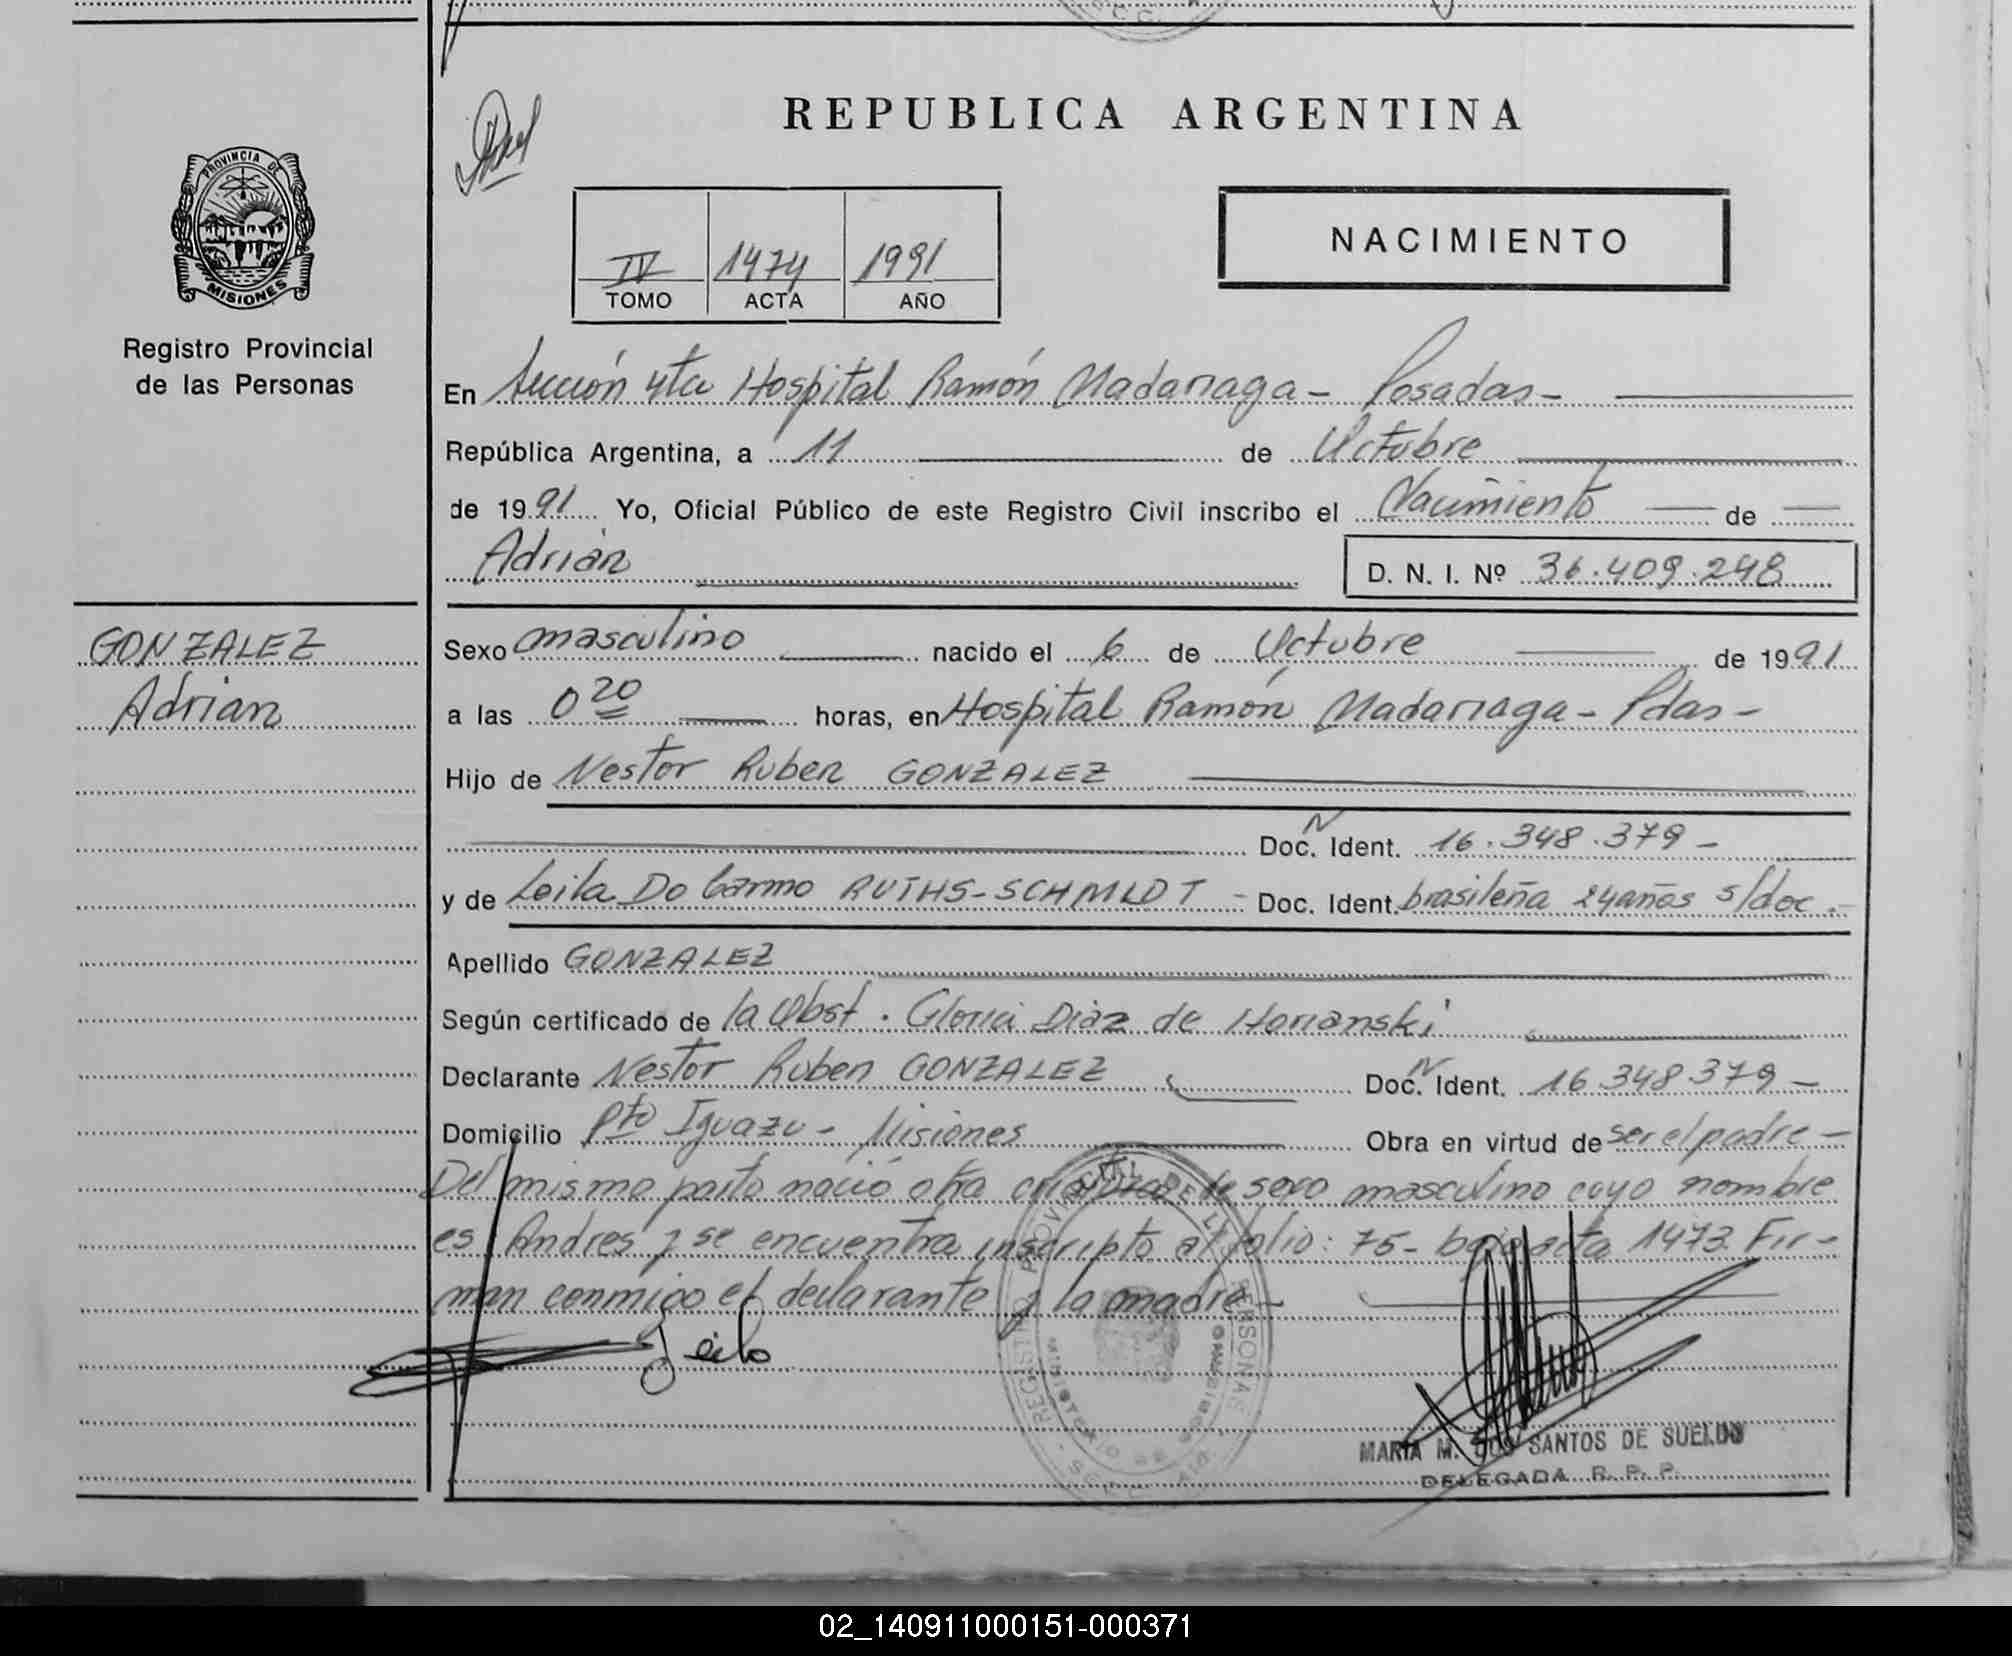 REPUBLICA ARGENTINA
PROVINCIA DE
MISIONES
Registro Provincial
de las Personas
IV 1474 1991
TOMO ACTA AÑO
NACIMIENTO
En Sección 4ta Hospital Ramón Madariaga - Posadas -
República Argentina, a 11 de Octubre
de 1991 Yo, Oficial Público de este Registro Civil inscribo el Nacimiento de
Adrián
D. N. I. Nº 36.409.298
GONZALEZ
Adrian
Sexo masculino nacido el 6 de Octubre de 1991
a las 0 20 horas, en Hospital Ramón Madariaga - Pdas -
Hijo de Nestor Ruben GONZALEZ
Doc. N Ident. 16.348.379 -
y de Leila Do Carmo RUTHS-SCHMIDT - Doc. Ident. brasileña 24 años s/doc.-
Apellido GONZALEZ
Según certificado de la Obst. Gloria Diaz de Horianski
Declarante Nestor Ruben GONZALEZ Doc. N Ident. 16.348.379 -
Domicilio Pto Iguazu - Misiones Obra en virtud de ser el padre -
Del mismo parto nació otra criatura de sexo masculino cuyo nombre
es Andres y se encuentra inscripto al folio: 75- bajo acta 1473. Fir-
man conmigo el declarante y la madre -
Leila
MARIA M. DOS SANTOS DE SUELDO
DELEGADA R. P. P.
02_140911000151-000371